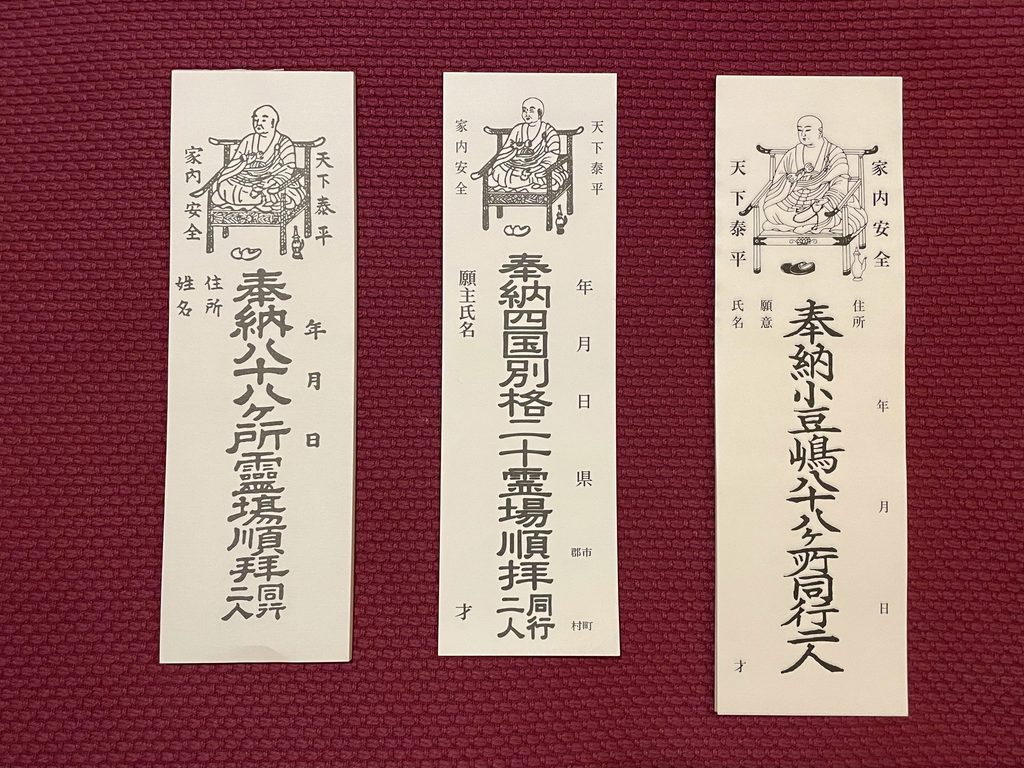 天下泰平
家内安全
年月日
奉納八十八ヶ所靈場順拝同行二人
住所
姓名
天下泰平
家内安全
年月日県市郡町村
奉納四国別格二十霊場順拝同行二人
願主氏名 才
家内安全
天下泰平
年月日
住所
奉納小豆嶋八十八ヶ所同行二人
願意
氏名 才